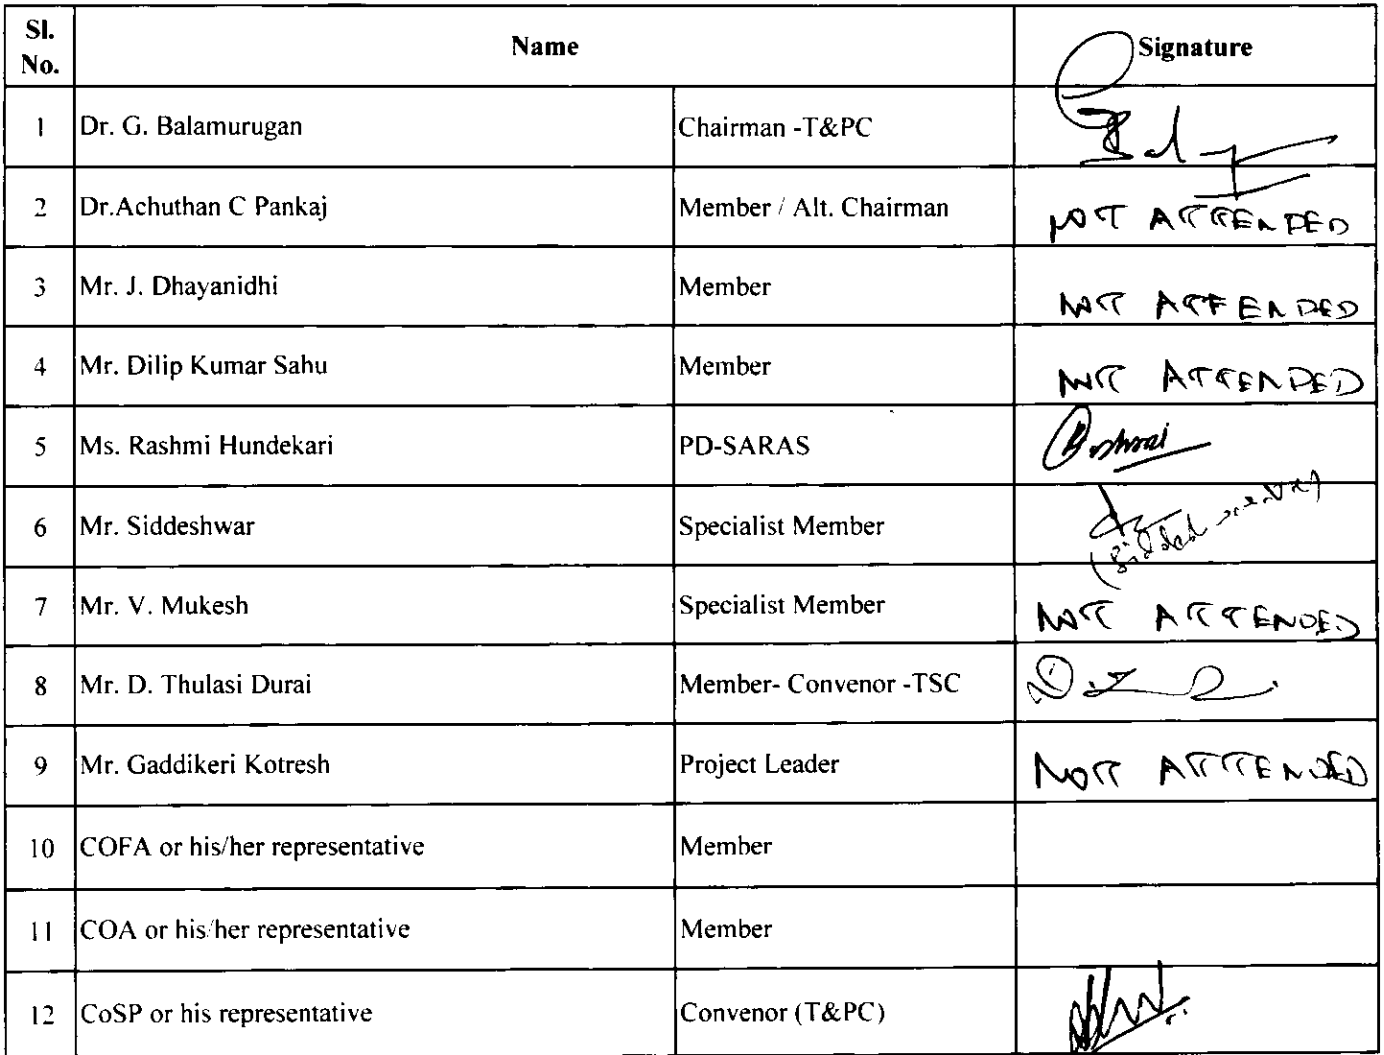 Sl. No. Name Signature
1 Dr. G. Balamurugan Chairman -T&PC
2 Dr.Achuthan C Pankaj Member / Alt. Chairman NOT ATTENDED
3 Mr. J. Dhayanidhi Member NOT ATTENDED
4 Mr. Dilip Kumar Sahu Member NOT ATTENDED
5 Ms. Rashmi Hundekari PD-SARAS
6 Mr. Siddeshwar Specialist Member
7 Mr. V. Mukesh Specialist Member NOT ATTENDED
8 Mr. D. Thulasi Durai Member- Convenor -TSC
9 Mr. Gaddikeri Kotresh Project Leader NOT ATTENDED
10 COFA or his/her representative Member
11 COA or his/her representative Member
12 CoSP or his representative Convenor (T&PC)